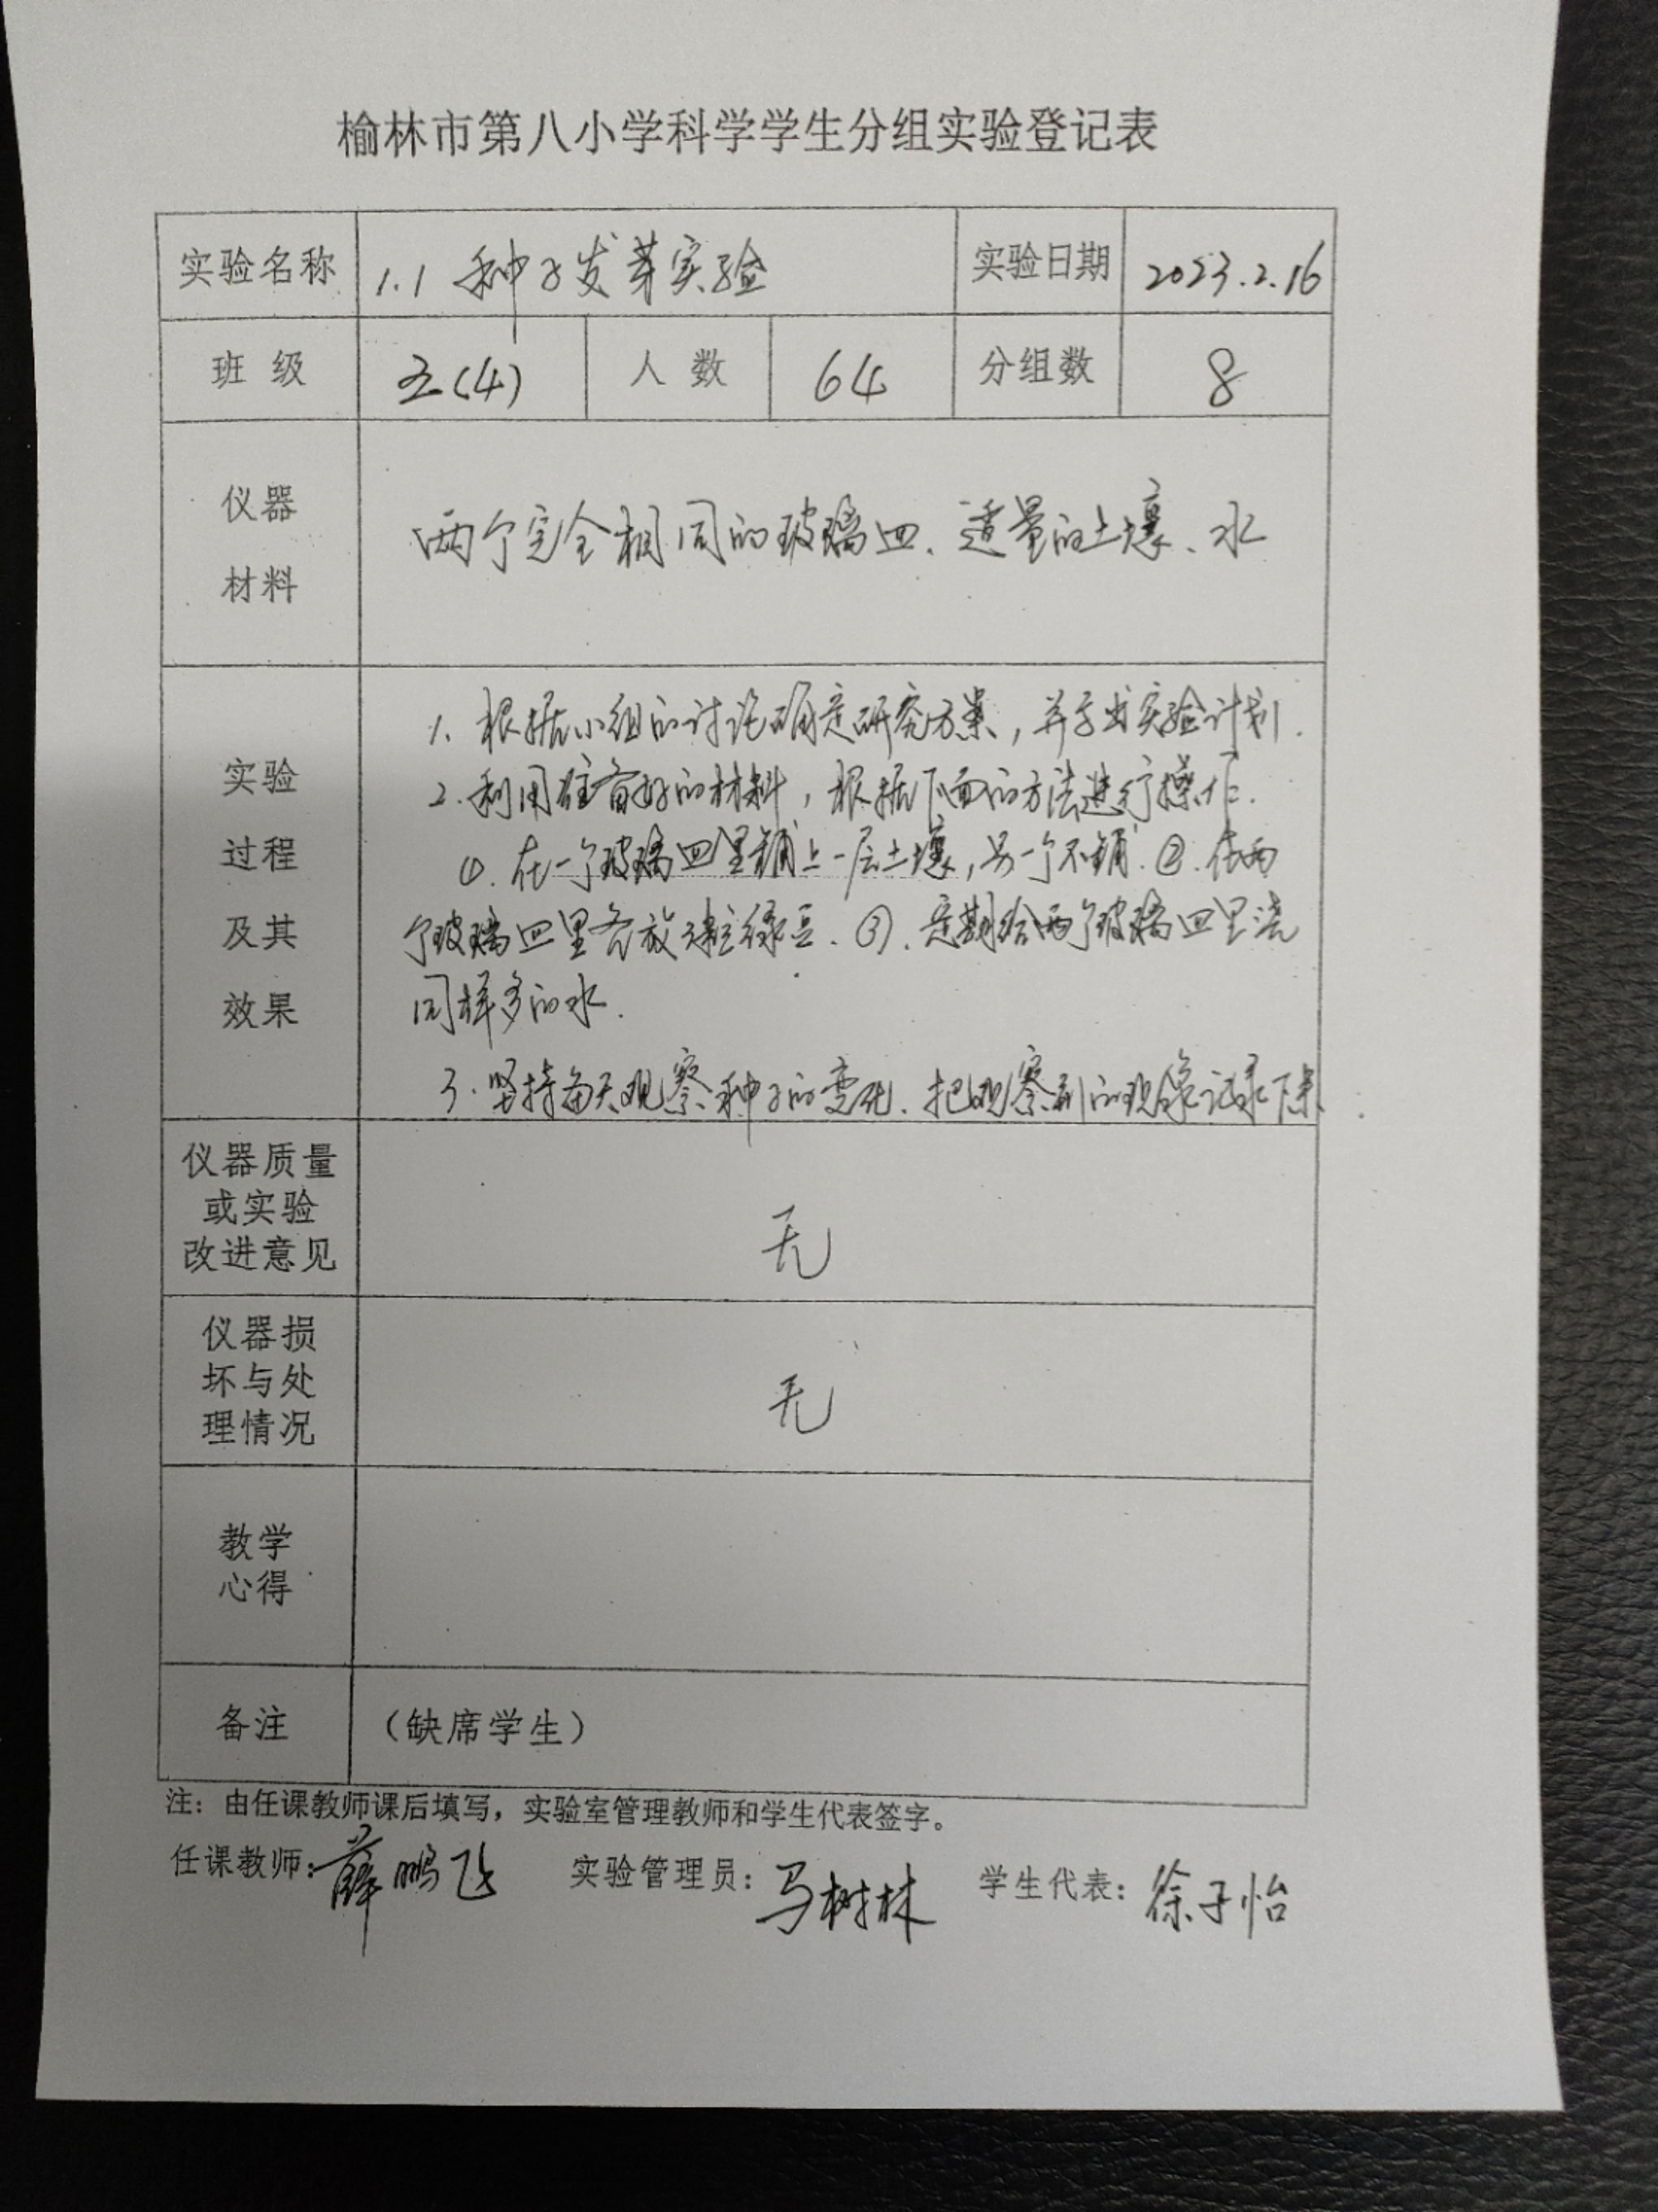 榆林市第八小学科学学生分组实验登记表
实验名称 1.1 种子发芽实验 实验日期 2023.2.16
班级 五(4) 人数 64 分组数 8
仪器
材料
两个完全相同的玻璃皿、适量的土壤、水
实验
过程
及其
效果
1、根据小组的讨论确定研究方案，并写出实验计划．
2．利用准备好的材料，根据下面的方法进行操作．
①．在一个玻璃皿里铺上一层土壤，另一个不铺．②．在两
个玻璃皿里各放 粒绿豆．③．定期给两个玻璃皿里浇
同样多的水．
3．坚持每天观察种子的变化．把观察到的现象记录下来．
仪器质量
或实验
改进意见
无
仪器损
坏与处
理情况
无
教学
心得
备注 （缺席学生）
注：由任课教师课后填写，实验室管理教师和学生代表签字。
任课教师：薛鹏飞 实验管理员：马树林 学生代表：徐子怡